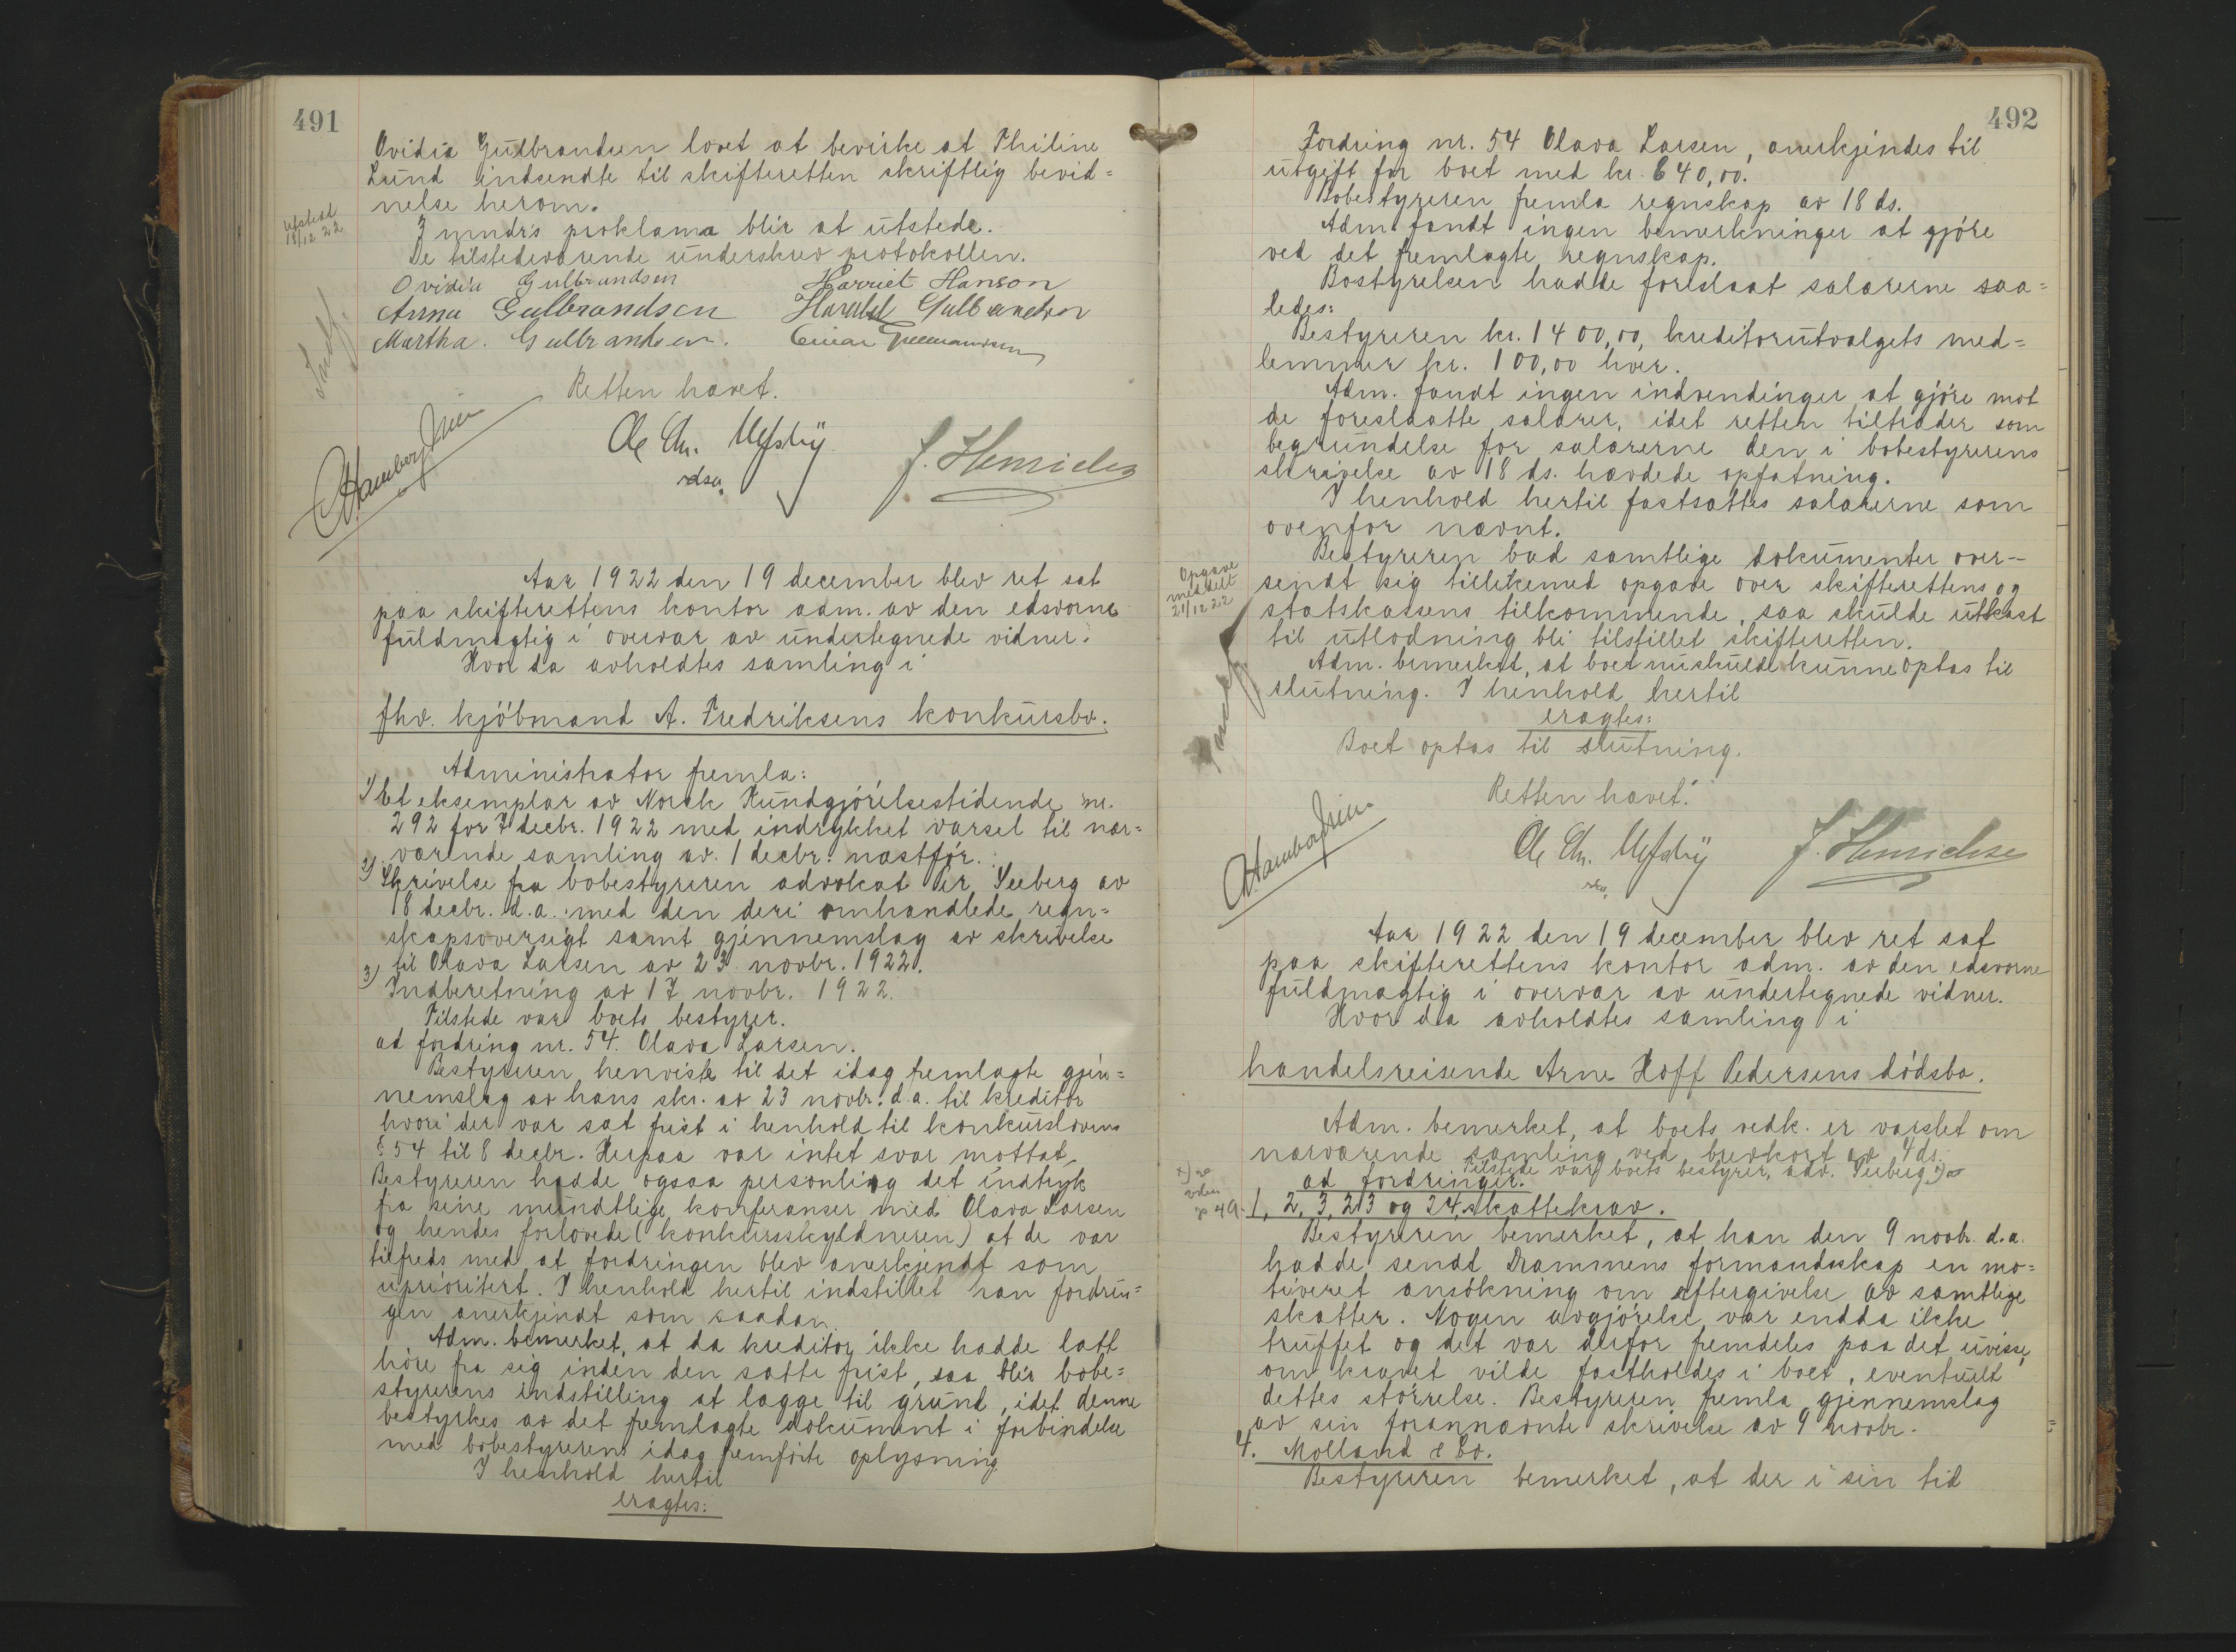 491
Ovidia Gulbrandsen lovet at bevirke at Thiline
Lund indsendte til skifteretten skriftlig bevid=
nelse herom.
utstedt
18/12 22
3 mndr's proklama blir at utstede.
De tilstedeværende underskrev protokollen.
Ovidia Gulbrandsen Harriet Hanson
Anna Gulbrandsen Harald Gulbrandsen
Martha. Gulbrandsen. Einar Gulbrandsen
Retten hævet.
Ole Chr.
edsv. J. Henrichs
Aar 1922 den 19 december blev ret sat
paa skifterettens kontor adm. av den edsvorne
fuldmægtig i overvær av undertegnede vidner.
Hvor da avholdtes samling i
fhv. kjöbmand A. Fredriksens konkursbo.
Administrator fremla:
1) Et eksemplar av Norsk Kundgjörelsestidende nr.
292 for 7 decbr. 1922 med indrykket varsel til nær=
værende samling av. 1 decbr. næstfør.
2) Skrivelse fra bobestyreren advokat Per Seeberg av
18 decbr. d.a. med den deri omhandlede regn=
skapsoversigt samt gjennemslag av skrivelse
til Olava Larsen av 23 novbr. 1922.
3) Indberetning av 17 novbr. 1922.
Tilstede var boets bestyrer.
ad fordring nr. 54. Olava Larsen.
Bestyreren henviste til det idag fremlagte gjen=
nemslag av hans skr. av 23 novbr. d.a. til kreditor
hvori der var sat frist i henhold til konkurslovens
§ 54 til 8 decbr. Herpaa var intet svar mottat.
Bestyreren hadde ogsaa personlig det indtryk
fra sine mundtlige konferanser med Olava Larsen
og hendes forlovede (konkursskyldneren) at de var
tilfreds med at fordringen blev anerkjendt som
uprioritert. I henhold hertil indstillet han fordrin=
gen anerkjendt som saadan.
Adm. bemerket, at da kreditor ikke hadde latt
höre fra sig inden den satte frist, saa blir bobe=
styrerens indstilling at lægge til grund, idet denne
bestyrkes av det fremlagte dokument i forbindelse
med bobestyrerens idag fremförte oplysning
I henhold hertil
eragtes:
492
Fordring nr. 54 Olava Larsen, anerkjendes til
utgift for boet med kr. 640,00.
Bobestyreren fremla regnskap av 18 ds.
Adm. fandt ingen bemerkninger at gjöre
ved det fremlagte regnskap.
Bostyrelsen hadde foreslaat salærerne saa=
ledes:
Bestyreren kr. 1400,00, kreditorutvalgets med=
lemmer kr. 100,00 hver.
Adm. fandt ingen indvendinger at gjöre mot
de foreslaatte salærer, idet retten tiltræder som
begrundelse for salærerne den i bobestyrerens
skrivelse av 18 ds. hævdede opfatning.
I henhold hertil fastsattes salærerne som
ovenfor nævnt.
Opgave
meddelt
21/12 22
Bestyreren bad samtlige dokumenter over-
sendt sig tillikemed opgave over skifterettens og
statskassens tilkommende, saa skulde utkast
til utlodning bli tilstillet skifteretten.
Adm. bemerket, at boet nu skulde kunne optas til
slutning. I henhold hertil
eragtes:
Boet optas til slutning.
Retten hævet.
Ole Chr.
J. Henrichs
Aar 1922 den 19 december blev ret sat
paa skifterettens kontor adm. av den edsvorne
fuldmægtig i overvær av undertegnede vidner.
Hvor da avholdtes samling i
handelsreisende Arne Hoff Pedersens dödsbo.
Adm. bemerket, at boets vedk. er varslet om
nærværende samling ved brevkort av 4 ds.
Tilstede var boets bestyrer, adv. Seeberg.
ad fordringer.
1, 2, 3, 23 og 24, skattekrav.
Bestyreren bemerket, at han den 9 novbr. d.a.
hadde sendt Drammens formandskap en mo=
tiveret ansökning om eftergivelse av samtlige
skatter. Nogen avgjörelse var endda ikke
truffet og det var derfor fremdeles paa det uvisse,
om kravet vilde fastholdes i boet, eventuelt
dettes störrelse. Bestyreren fremla gjennemslag
av sin forannævnte skrivelse av 9 novbr.
4. Molland & Co.
Bestyreren bemerket, at der i sin tid